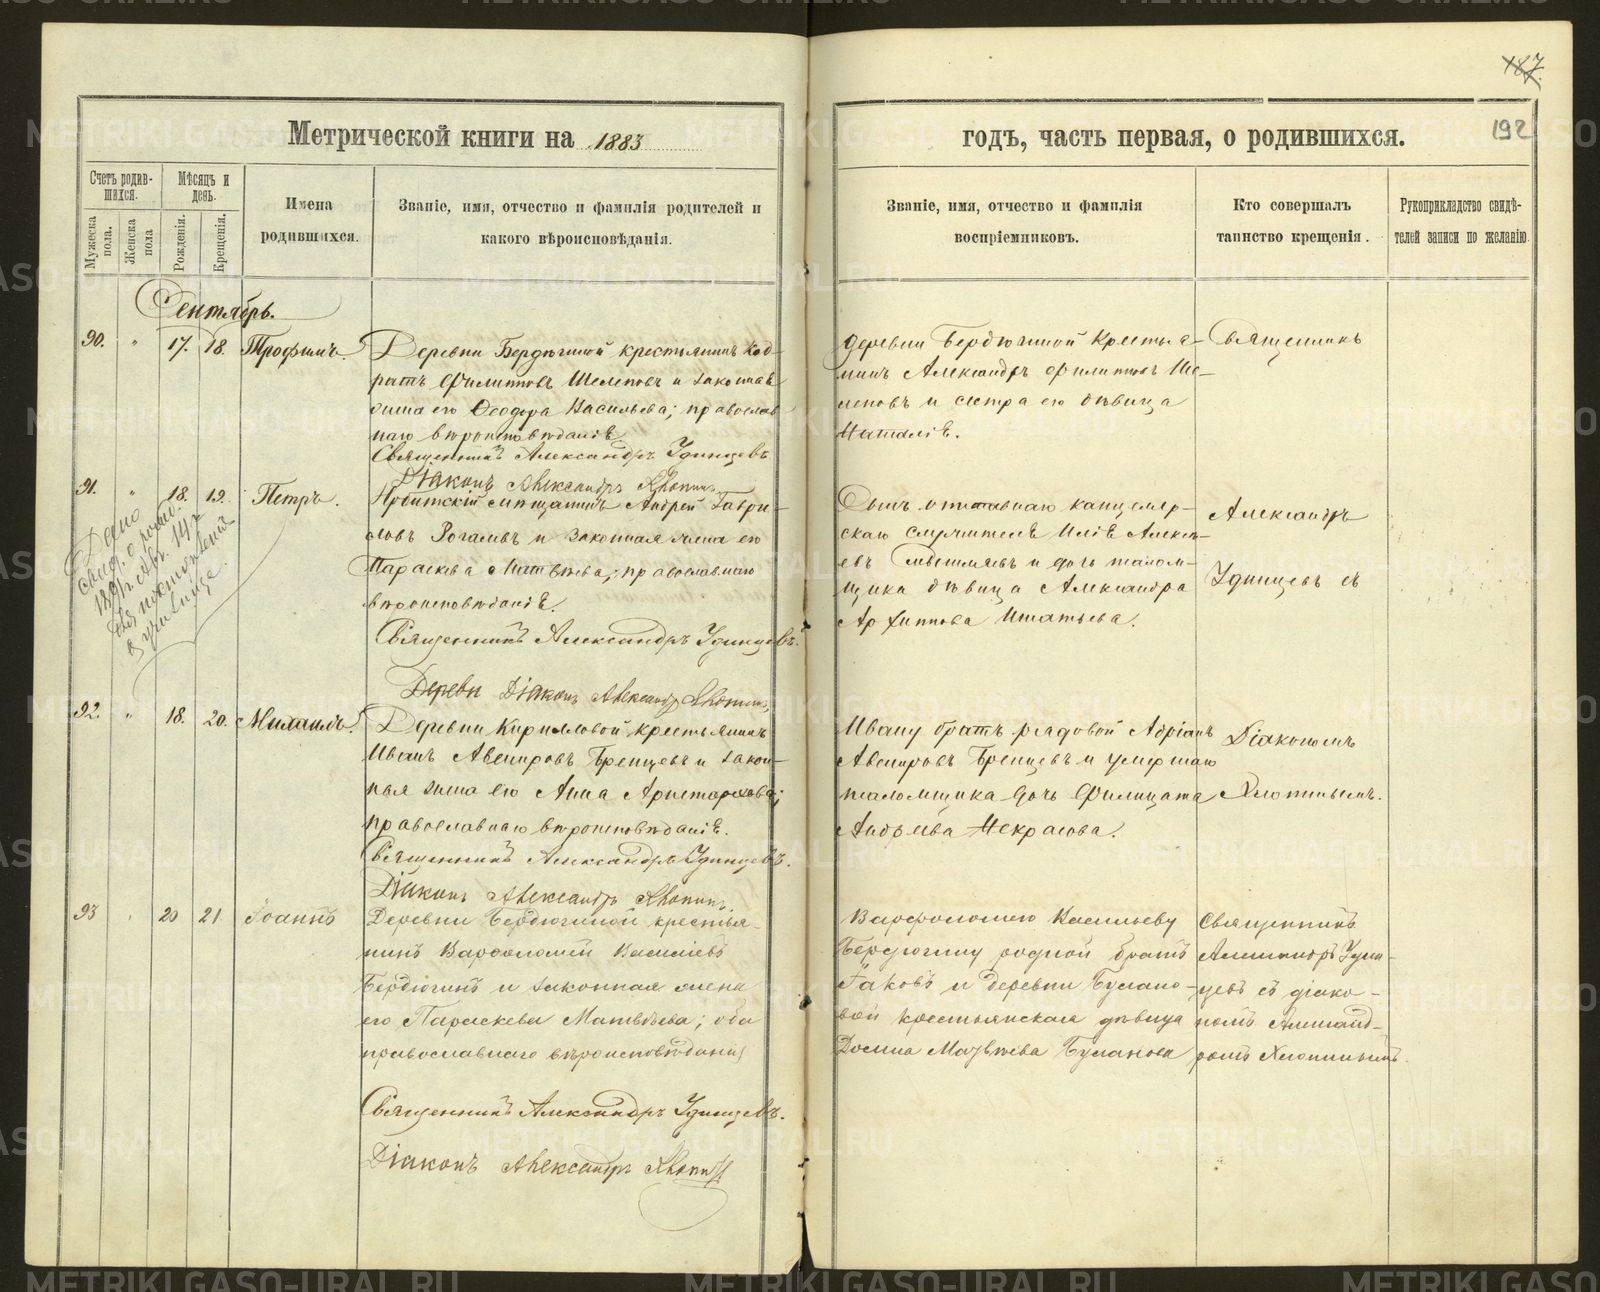 187.
192
Метрической книги на 1883
годъ, часть первая, о родившихся.
Счетъ родившихся.
Мужеска пола.
Женска пола
Мѣсяцъ и день.
Рожденія.
Крещенія.
Имена родившихся.
Званіе, имя, отчество и фамилія родителей и
какого вѣроисповѣданія.
Званіе, имя, отчество и фамилія
воспріемниковъ.
Кто совершалъ
таинство крещенія.
Рукоприкладство свидѣ-
телей записи по желанію.
Сентябрь.
90. " 17. 18. Трофимъ.
Деревни Бердюгиной крестьянинъ Код-
ратъ Филипповъ Шелеповъ и законная
жена его Ѳеодора Васильева; православ
наго вѣроисповѣданія
Священникъ Александръ Удинцевъ
Діаконъ Александръ Хлопинъ
деревни Бердюгиной крестья-
нинъ Александръ Филипповъ Ше-
леповъ и сестра его дѣвица
Наталія.
Священникъ
91. " 18. 19. Петръ.
Ирбитскій мѣщанинъ Андрей Гаври-
ловъ Рогалевъ и законная жена его
Параскева Матвѣева; православнаго
вѣроисповѣданія.
Священникъ Александръ Удинцевъ.
Деревн Діаконъ Александръ Хлопинъ,
Сынъ отставнаго канцеляр-
скаго служителя Илія Алексѣ-
евъ и дочь псалом-
щика дѣвица Александра
Архиппова Игнатьева.
Александръ
Удинцевъ съ
Дано
свид. о рожд.
189 г. Авг. 14
для поступленія
въ училище.
92. " 18. 20. Михаилъ.
Деревни Кирилловой крестьянинъ
Иванъ Авенировъ Бренцевъ и закон-
ная жена его Анна Аристархова;
православнаго вѣроисповѣданія.
Священникъ Александръ Удинцевъ.
Діаконъ Александръ Хлопинъ.
Ивану братъ рядовой Адріанъ
Авенировъ Бренцевъ и умершаго
псаломщика дочь Филицата
Андреева Некрасова.
Діакономъ
Хлопинымъ.
93 " 20 21 Іоаннъ
Деревни Бердюгиной крестья-
нинъ Варфоломей Василіевъ
Бердюгинъ и законная жена
его Параскева Матвѣева; оба
православнаго вѣроисповѣданія
Священникъ Александръ Удинцевъ.
Діаконъ Александръ Хлопинъ
Варфоломею Васильеву
Бердюгину родной братъ
Іаковъ и деревни Булано-
вой крестьянская дѣвица
Домна Матвѣева Буланова
Священникъ
Александръ Удин-
цевъ съ діако-
номъ Александ-
ромъ Хлопинымъ.
METRIKI.GASO-URAL.RU